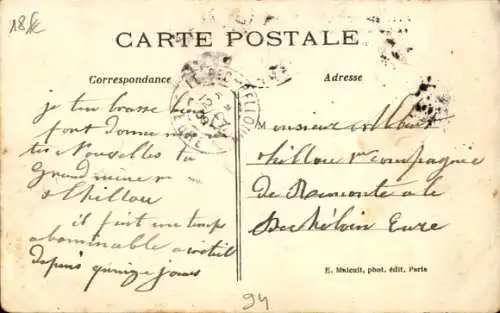 18 fr
CARTE POSTALE
Correspondance
Adresse
je t'en brasse bien
fort donne moi
tes Nouvelles ta
Grand mère
Thillou
il fait un temps
abominable
depuis quinze jours
Monsieur Albert
Thillou 1re compagnie
de Remonte a le
Bec hélouin Eure
E. Malcuit, phot. édit, Paris
94